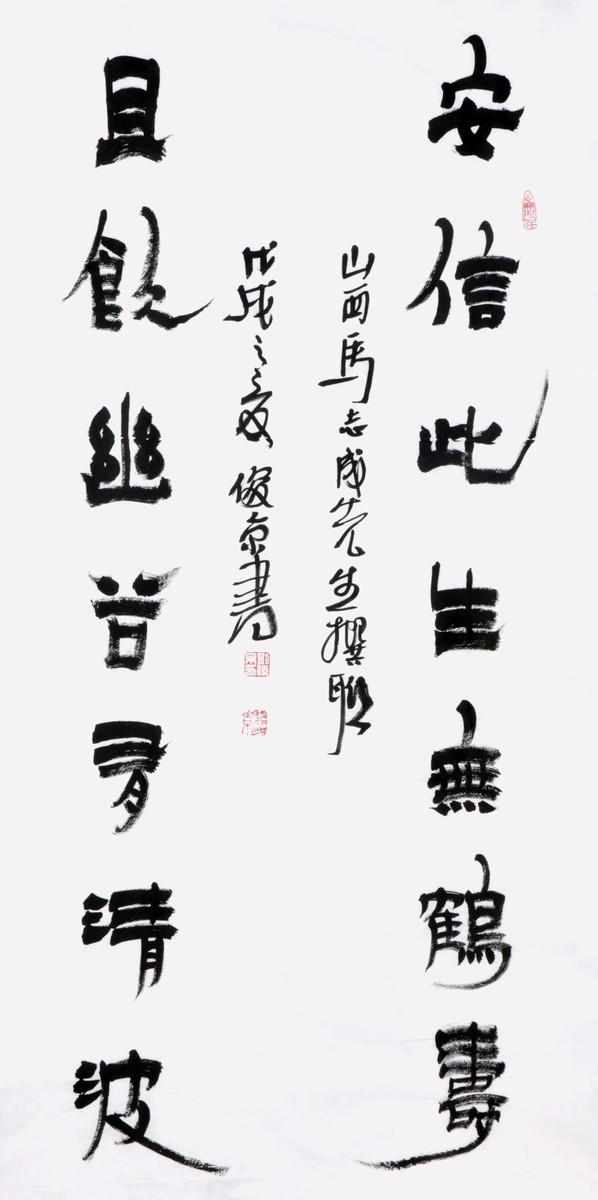 安信此生無鶴壽
山西馬志成先生撰聯
戊戌之夏 俊京書
且飲幽谷有清波